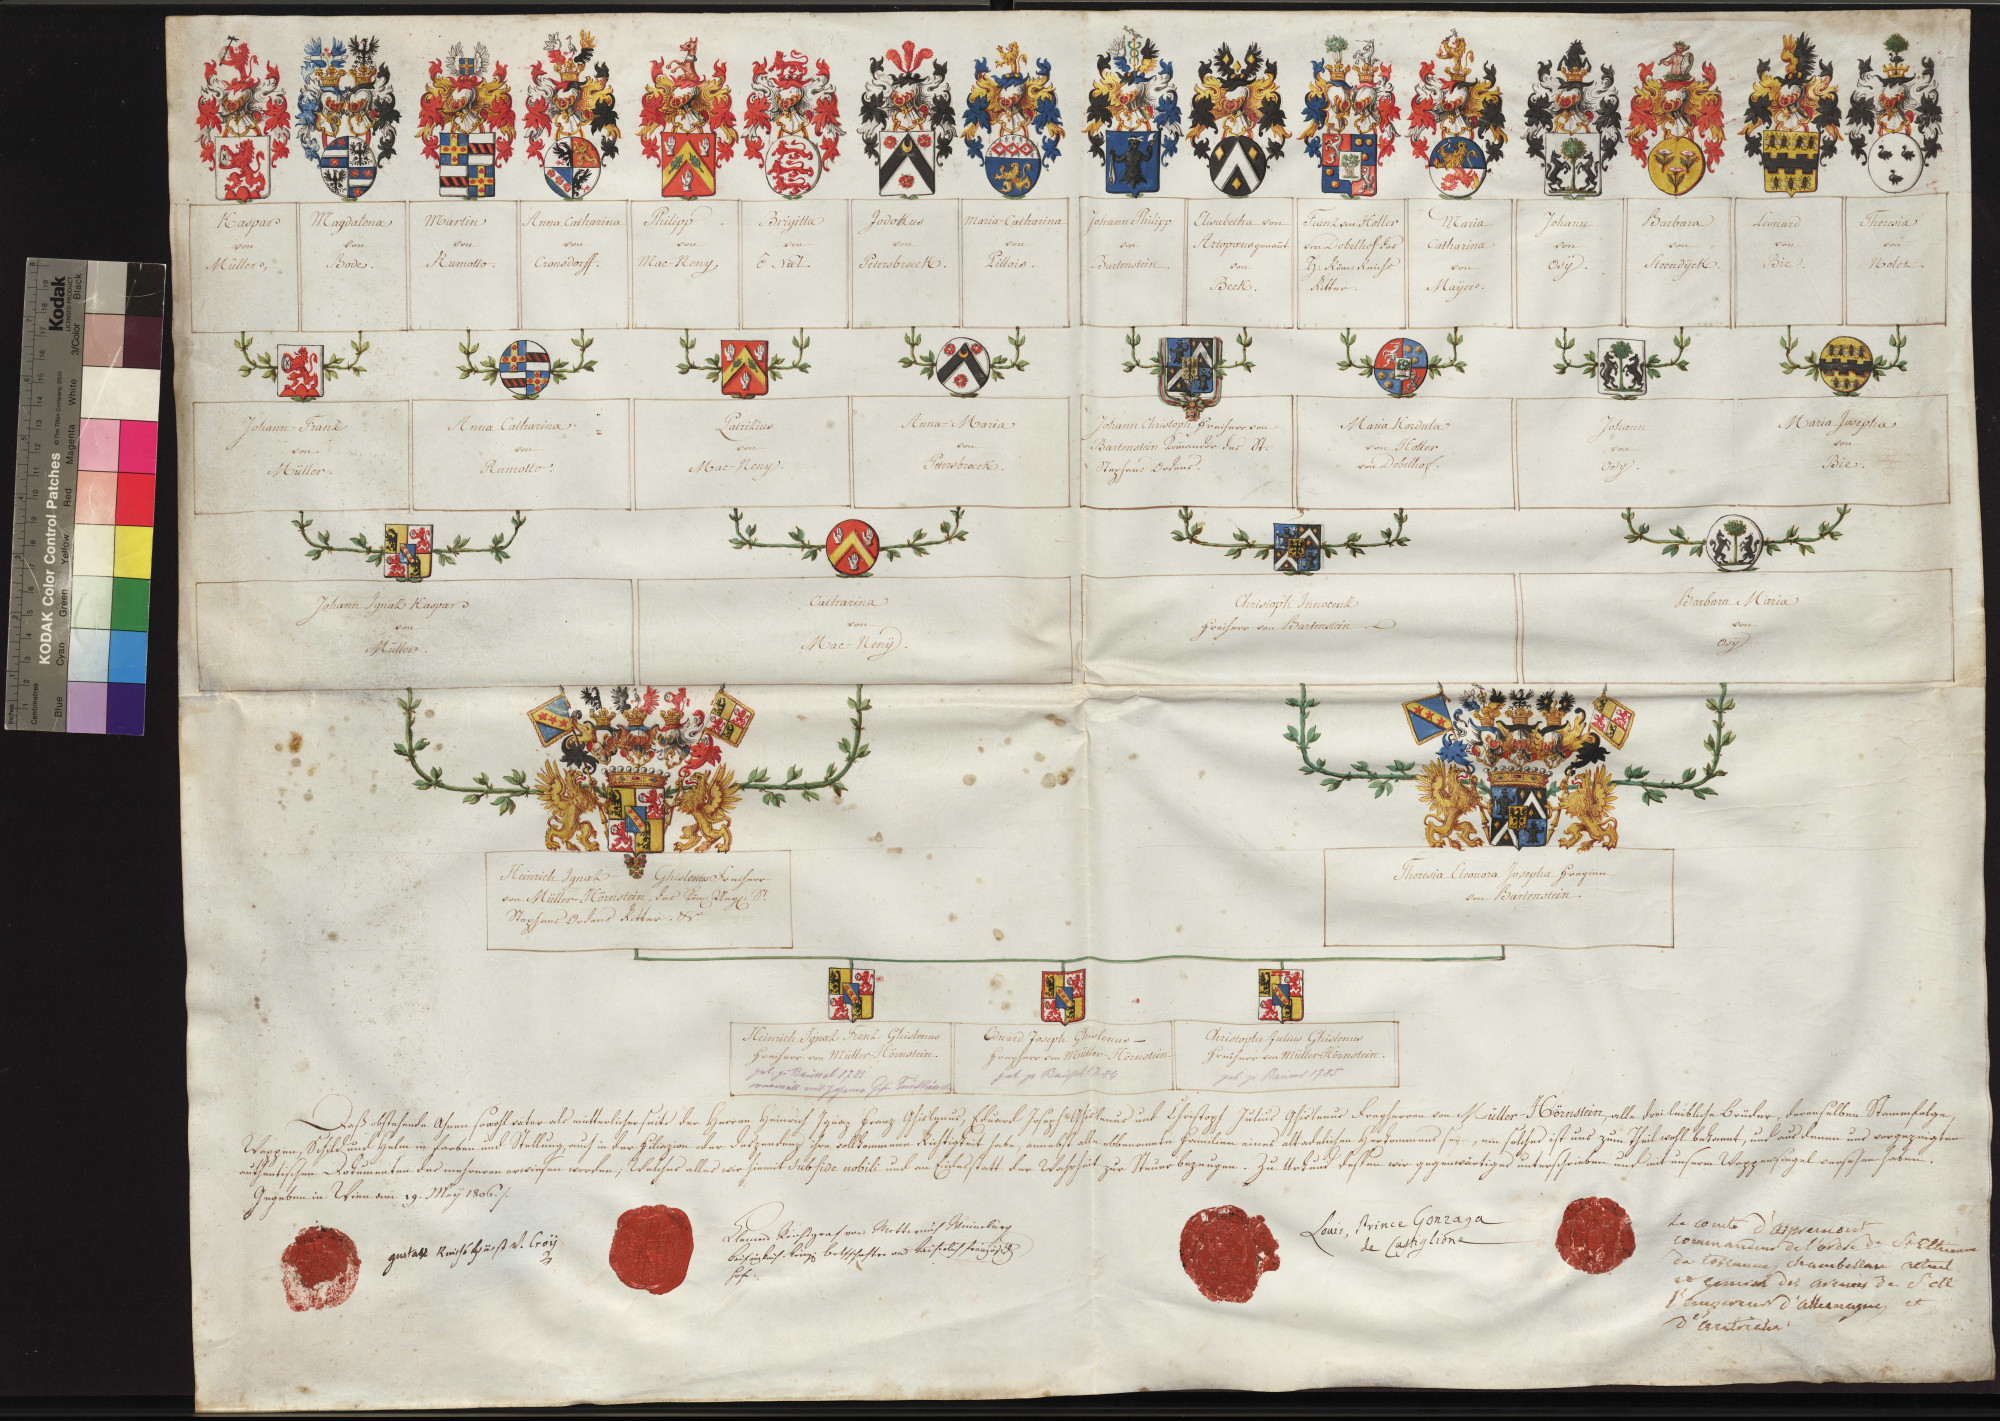 Kaspar
von
Müller.
Magdalena
von
Bode.
Martin
von
Rumotto.
Anna Catharina
von
Cronsdorff.
Philipp
von
Mac-Neny
Brigitta
von
Jodokus
von
Petersbroeck.
Maria Catharina
von
Pillois.
Johann Philipp
von
Bartenstein
Elisabetha von
Artopoeus genant
von
Beck.
Franz von Holler
von Dobelhof des
H: Röm: Reichs
Ritter.
Maria
Catharina
von
Mayer.
Johann
von
Osÿ.
Barbara
von
Steendÿck.
Leonard
von
Bie.
Theresia
von
Nolet.
Johann Franz
von
Müller.
Anna Catharina
von
Rumotto.
Patrikius
von
Mac-Neny.
Anna-Maria
von
Petersbroeck.
Johann Christoph Freiherr von
Bartenstein Comandor des St.
Stephans Ordens.
Maria Kordula
von Holler
von Dobelhof.
Johann
von
Osÿ.
Maria Josepha
von
Bie.
Johann Ignaz Kaspar
von
Müller.
Catharina
von
Mac-Nenÿ.
Christoph Innocenz
Freiherr von Bartenstein
Barbara Maria
von
Osÿ
Heinrich Ignaz Ghislenus Freiherr
von Müller-Hörnstein, des St.
Stephans Ordens Ritter. &c
Theresia Eleonora Josepha Freyinn
von Bartenstein.
Heinrich Ignaz Franz Ghislenus
Freiherr von Müller-Hörnstein.
geb. zu Brüssel 1781
Eduard Joseph Ghislenus
Freyherr von Müller-Hörnstein
geb. zu Brüssel
Christoph Julius Ghislenus
Freiherr von Müller-Hörnstein.
geb. zu Brüssel 1785
Daß obstehende Ahnen sowohl väter als mütterlicher seite der Herren Heinrich Ignaz Franz Ghislenus, Eduard Joseph Ghislenus und Christoph Julius Ghislenus Freyherren von Müller-Hörnstein, alle drei leibliche Brüder, derenselben Stammfolge,
Wappen, Schild und Helm in Farben und Stellung, auch in der Filiazion der Aszendenz ihre vollkommene Richtigkeit habe, annebst alle obbenannte Familien eines altadelichen Herkommens seyn, ein solches ist uns zum Theil wohl bekannt, und aus denen uns vorgezeigten
authentischen Dokumenten des mehreren erwiesen worden; Welches alles wir hiemit Subfide nobili und an Eidesstatt der Wahrheit zur Steuer bezeugen. Zu Urkund dessen wir gegenwärtiges unterschrieben und mit unserm Wappensiegel versehen haben.
Gegeben in Wien am 19. Meÿ 1806.
gustav Reichsfürst v. Croÿ
Clemens Reichsgraf von Metternich Winneburg
Louis, Prince Gonzaga
de Castiglione
Le comte d'aspremont
commandeur de l'ordre de St Etienne
de toscanne, chambellan actuel
et general des armées de S. M.
l'empereur d'allemagne, et
d'autriche
KODAK Color Control Patches
Kodak
LICENSED PRODUCT
Black
3/Color
White
Magenta
Red
Yellow
Green
Cyan
Blue
Centimetres
Inches